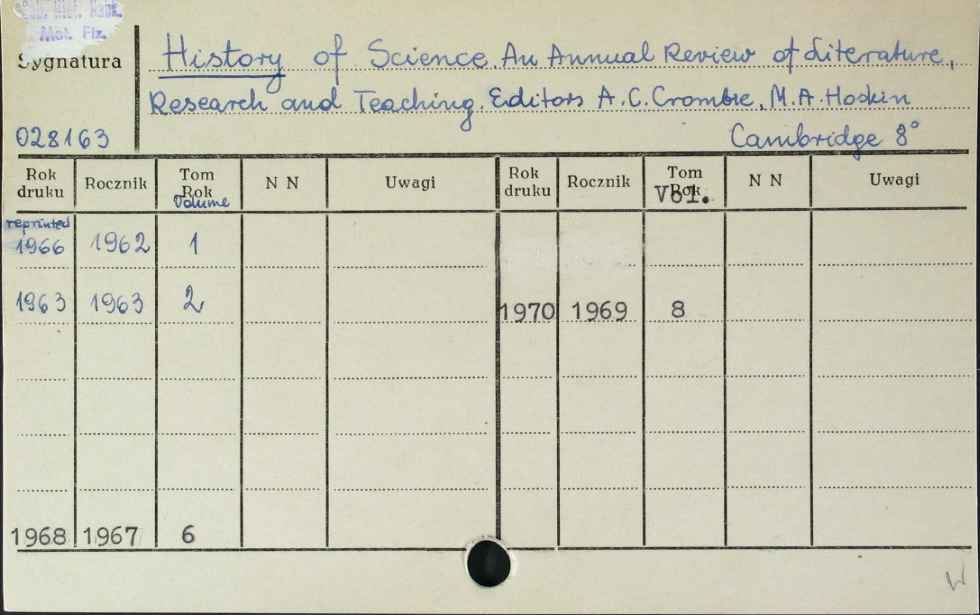 Mat. Fiz.
Sygnatura
History of Science. An Annual Review of Literature,
Research and Teaching. Editors A.C. Crombie, M.A. Hoskin
028163
Cambridge 8°
Rok druku Rocznik Tom Rok Volume N N Uwagi Rok druku Rocznik Tom Rok Vol. N N Uwagi
reprinted
1966 1962 1
1963 1963 2
1970 1969 8
1968 1967 6
W